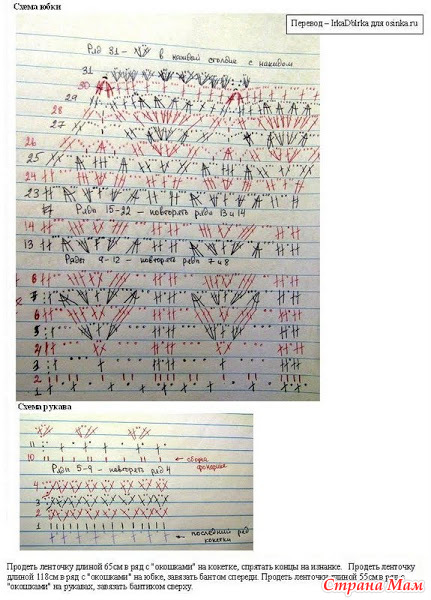 Схема юбки
Перевод – IrkaDbIrka для osinka.ru
Ряд 31 – в каждый столбик с накидом
31
30
29
28
27
26
25
24
23
Ряды 15-22 – повторять ряды 13 и 14
14
13
Ряды 9-12 – повторять ряды 7 и 8
8
7
6
5
4
3
2
1
Схема рукава
11
10 сборка фонарика
Ряды 5-9 – повторять ряд 4
4
3
2
1
последний ряд кокетки
Продеть ленточку длиной 65см в ряд с "окошками" на кокетке, спрятать концы на изнанке. Продеть ленточку
длиной 118см в ряд с "окошками" на юбке, завязать бантом спереди. Продеть ленточки длиной 55см в ряд с
"окошками" на рукавах, завязать бантиком сверху.
Страна Мам